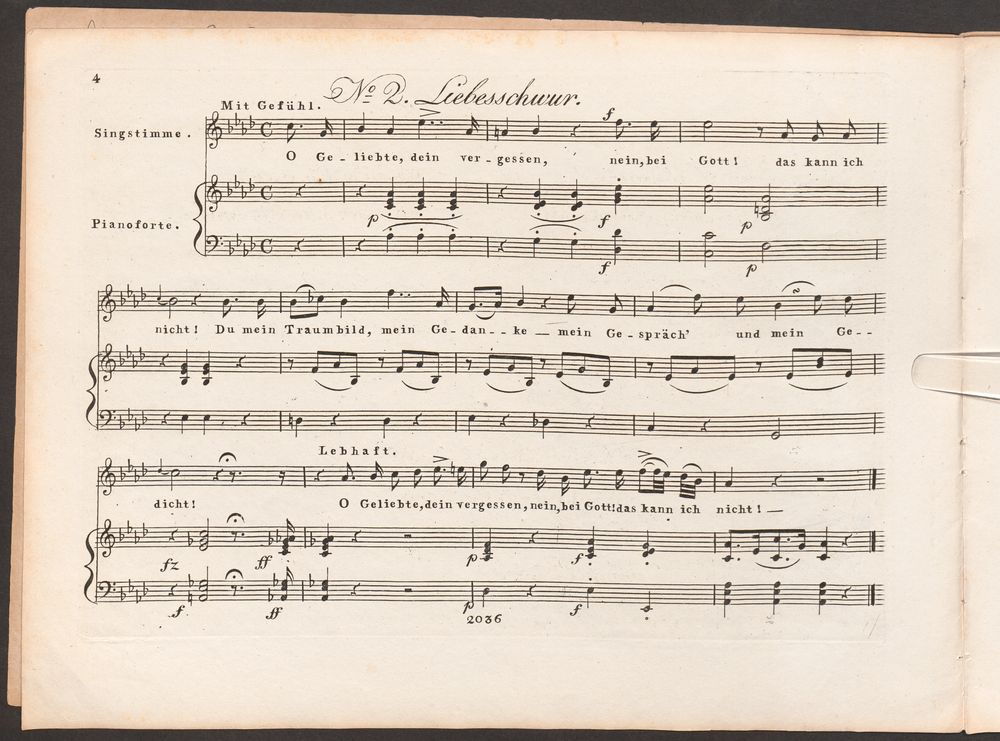 4
No 2. Liebesschwur.
Mit Gefühl.
Singstimme.
f
O Ge-liebte, dein ver-gessen, nein, bei Gott! das kann ich
Pianoforte.
p f p
f p
nicht! Du mein Traumbild, mein Ge-dan--ke — mein Ge-spräch' und mein Ge--
Lebhaft.
dicht! O Geliebte, dein vergessen, nein, bei Gott! das kann ich nicht! —
fz ff p f
f ff p f
2036